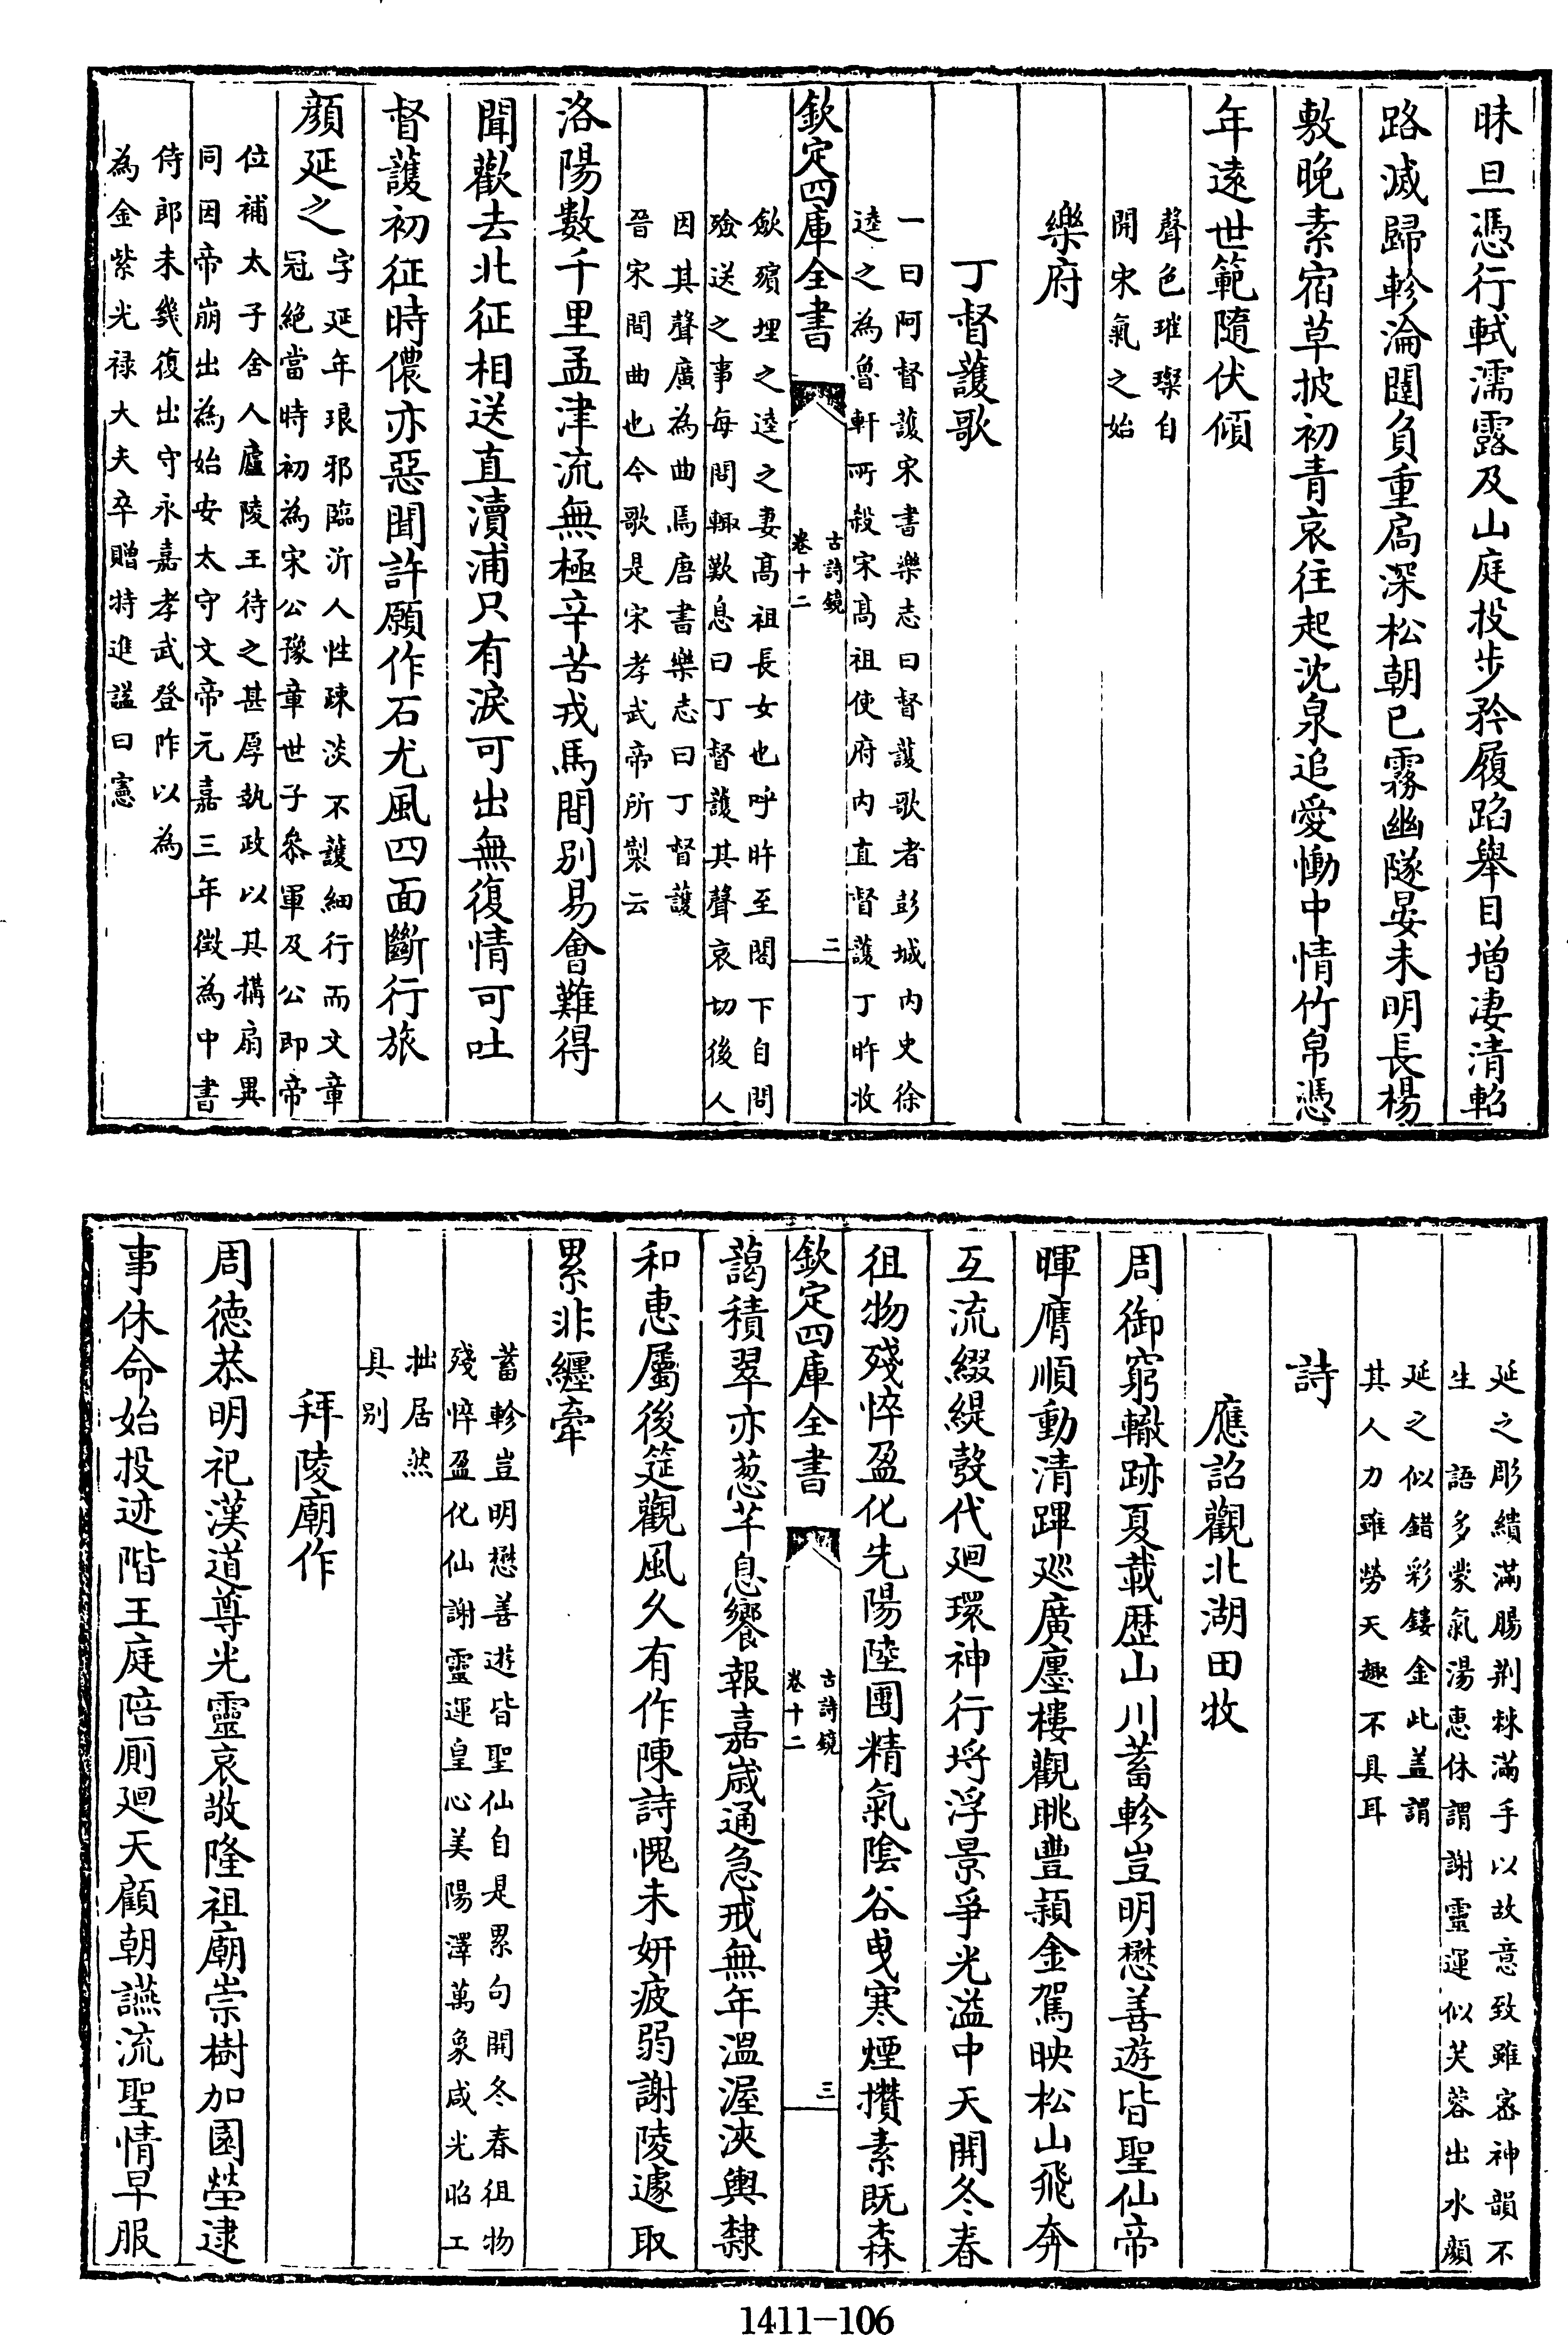 昧旦憑行軾濡露及山庭投步矜履蹈舉目增淒清軺
路滅歸軫淪閮負重扃深松朝已霧幽隧晏未明長楊
敷晚素宿草披初青哀往起沈泉追愛慟中情竹帛憑
年遠世範隨伏傾
聲色璀璨自
開宋氣之始
樂府
丁督護歌
一曰阿督護宋書樂志曰督護歌者彭城內史徐
逵之為魯軒所殺宋髙祖使府內直督護丁旿收
欽定四庫全書
古詩鏡
卷十二
二
斂殯埋之逵之妻髙祖長女也呼旿至閤下自問
殮送之事每問輙歎息曰丁督護其聲哀切後人
因其聲廣為曲焉唐書樂志曰丁督護
晉宋間曲也今歌是宋孝武帝所製云
洛陽數千里孟津流無極辛苦戎馬間别易會難得
聞歡去北征相送直瀆浦只有淚可出無復情可吐
督護初征時儂亦惡聞許願作石尤風四面斷行旅
顔延之
字延年琅邪臨沂人性踈淡不護細行而文章
冠絶當時初為宋公豫章世子叅軍及公即帝
位補太子舍人廬陵王待之甚厚執政以其搆扇異
同因帝崩出為始安太守文帝元嘉三年徵為中書
侍郎未幾復出守永嘉孝武登阼以為
為金紫光禄大夫卒贈特進諡曰憲
延之彫繢滿腸荆棘滿手以故意致雖密神韻不
生　語多蒙氣湯惠休謂謝靈運似芙蓉出水顔
延之似錯彩鏤金此盖謂
其人力雖勞天趣不具耳
詩
應詔觀北湖田牧
周御窮轍跡夏載歴山川蓄軫豈明懋善遊皆聖仙帝
暉膺順動清蹕廵廣㕓樓觀眺豐穎金駕映松山飛奔
互流綴緹彀代廻環神行埒浮景爭光溢中天開冬春
徂物殘悴盈化先陽陸團精氣陰谷曵寒煙攢素既森
欽定四庫全書
古詩鏡
卷十二
三
藹積翠亦葱芊息饗報嘉歲通急戒無年溫渥浹輿隸
和惠屬後筵觀風久有作陳詩愧未妍疲弱謝陵遽取
累非纒牽
蓄軫豈明懋善遊皆聖仙自是累句開冬春徂物
殘悴盈化仙謝靈運皇心美陽澤萬象咸光昭工
拙居然
具别
拜陵廟作
周德恭明祀漢道尊光靈哀敬隆祖廟崇樹加園塋逮
事休命始投迹階王庭陪厠廻天顧朝讌流聖情早服
1411-106